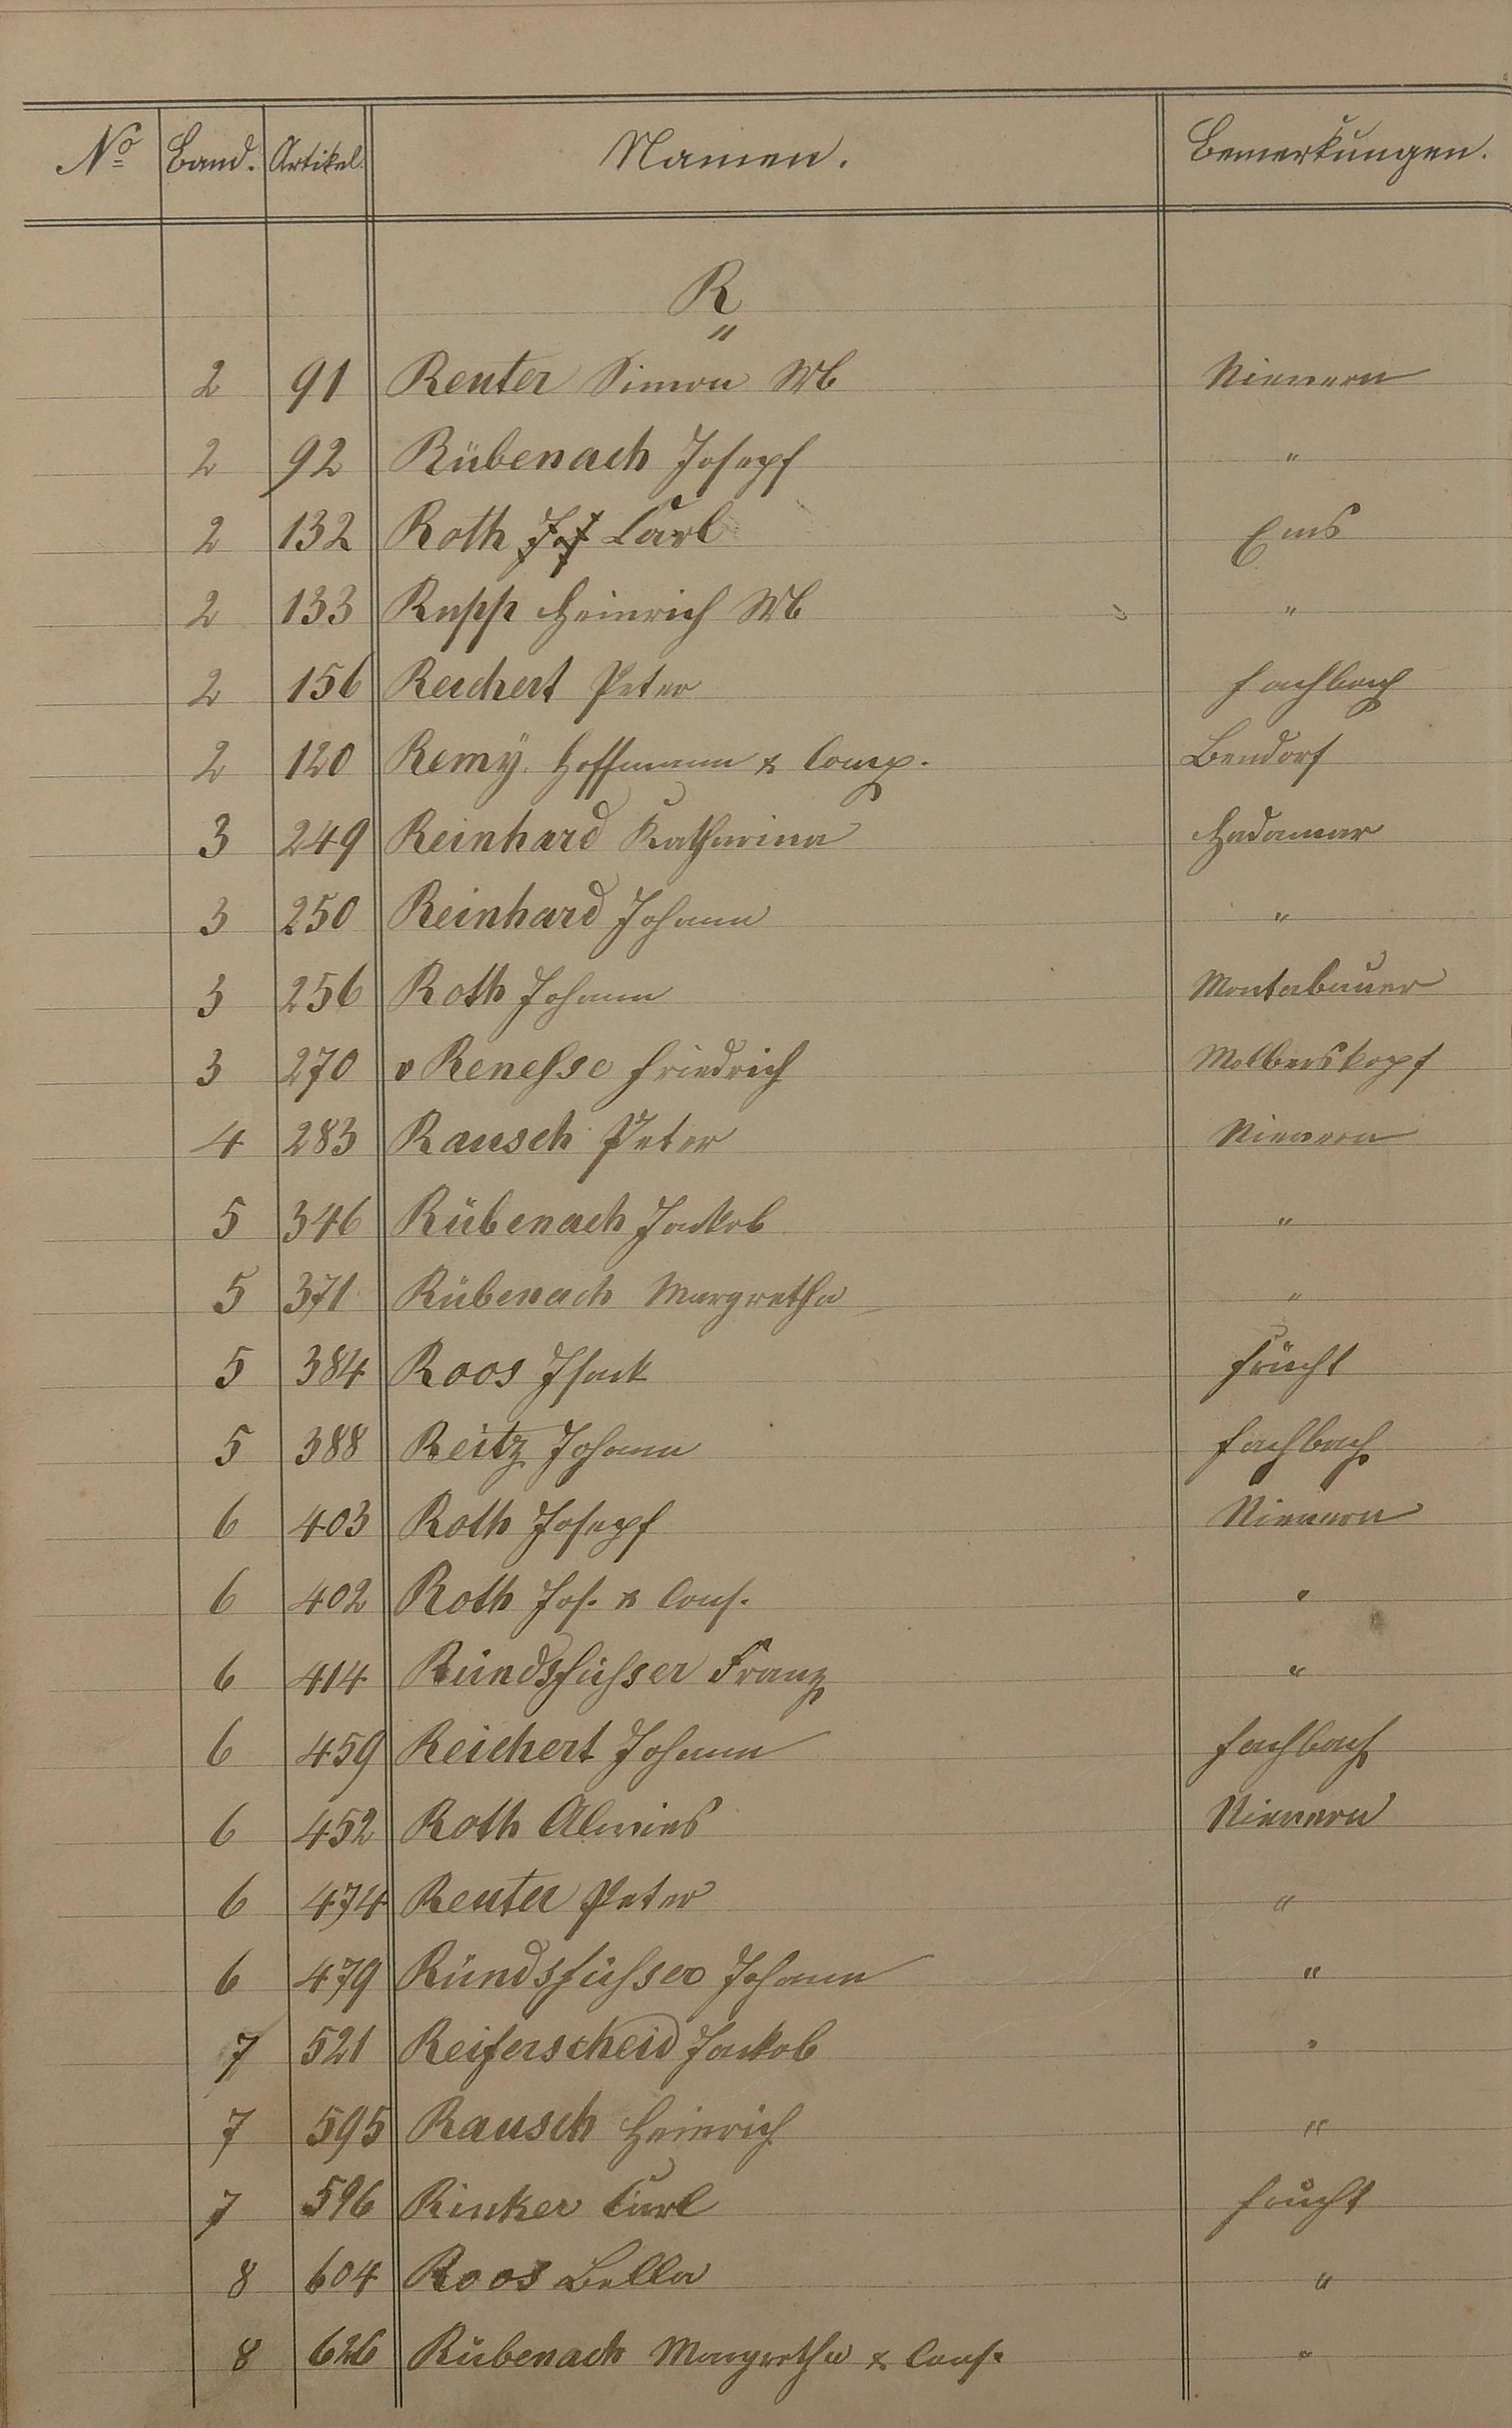 No Band. Artikel. Namen. Bemerkungen.
R
2 91 Reuter Simon Wb Nievern
2 92 Rübenach Josepf "
2 132 Roth Carl Ems
2 133 Rupp Heinrich Wb "
2 156 Reichert Peter Fachbach
2 120 Remÿ Hoffmann & Comp. Bendorf
3 249 Reinhard Katharina Hadamar
3 250 Reinhard Johann "
3 256 Roth Johann Montabauer
3 270 v Renesse Friedrich Molberskopf
4 283 Rausch Peter Nievern
5 346 Rübenach Jackob "
5 371 Rübenach Margretha "
5 384 Roos Isack Frücht
5 388 Reitz Johann Fachbach
6 403 Roth Josepf Nievern
6 402 Roth Jos. & Cons. "
6 414 Rundsfüsser Franz "
6 459 Reichert Johann Fachbach
6 452 Roth Nievern
6 474 Reuter Peter "
6 479 Rundsfüsser Johann "
7 521 Reiferscheid Jackob "
7 595 Rausch Heinrich "
7 596 Rinker Carl Frücht
8 604 Roos Bella "
8 626 Rübenach Margretha & Cons. "